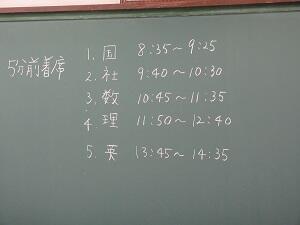 5分前着席
1. 国 8:35～9:25
2. 社 9:40～10:30
3. 数 10:45～11:35
4. 理 11:50～12:40
5. 英 13:45～14:35